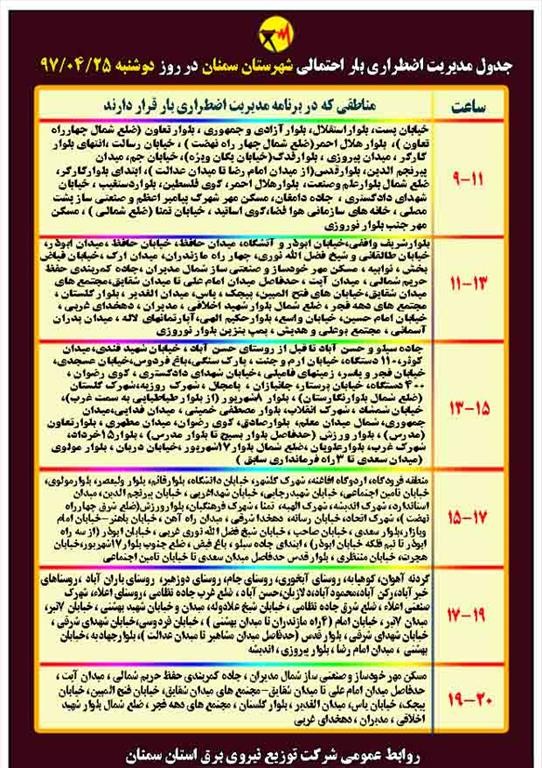 جدول مدیریت اضطراری بار احتمالی شهرستان سمنان در روز دوشنبه ۹۷/۰۴/۲۵
ساعت
مناطقی که در برنامه مدیریت اضطراری بار قرار دارند
۹-۱۱
خیابان پست، بلوار استقلال، بلوار آزادی و جمهوری ، بلوار تعاون (ضلع شمال چهارراه
تعاون )، بلوار هلال احمر(ضلع شمال چهار راه نهضت ) ، خیابان رسالت ،انتهای بلوار
کارگر ، میدان پیروزی ، بلوارفدک(خیابان یگان ویژه)، خیابان جم، میدان
پیرنجم الدین، بلوارقدس(از میدان امام رضا تا میدان عدالت )، ابتدای بلوارکارگر،
ضلع شمال بلوارعلم وصنعت، بلوارهلال احمر، کوی فلسطین،بلواردستغیب ، خیابان
شهدای دادگستری ، جاده دامغان، مسکن مهر شهرک پیامبر اعظم و صنعتی ساز پشت
مصلی ، خانه های سازمانی هوا فضا،کوی اساتید ، خیابان تمتا (ضلع شمالی ) ، مسکن
مهر جنب بلوار نوروزی
۱۱-۱۳
بلوارشریف واقفی،خیابان ابوذر و آتشگاه، میدان حافظ، خیابان حافظ ، میدان ابوذر،
خیابان طالقانی و شیخ فضل الله نوری، چهار راه مازندران، میدان ارک ، خیابان فیاض
بخش ، نوابیه ، مسکن مهر خودساز و صنعتی ساز شمال مدیران ،جاده کمربندی حفظ
حریم شمالی ، میدان آیت ، حدفاصل میدان امام علی تا میدان شقایق،مجتمع های
میدان شقایق،خیابان های فتح المبین، پیچک ، یاس، میدان الغدیر ، بلوار گلستان ،
مجتمع های دهه فجر ، ضلع شمال بلوار شهید اخلاقی ، مدیران ، دهخدای غربی ،
خیابان امام حسین، خیابان واسع، بلوارحکیم الهی،آپارتمانهای لاله ، میدان پدران
آسمانی ، مجتمع بوعلی و هدیش ، پمپ بنزین بلوار نوروزی
۱۳-۱۵
جاده سیلو و حسن آباد تا قبل از روستای حسن آباد ، خیابان شهید قندی،میدان
کوثر،۱۱۰ دستگاه، خیابان ارم و جنت ، پارک سنگی،باغ فردوس،خیابان عسجدی،
خیابان فجر و یاسر، زمینهای فامیلی ، خیابان شهدای دادگستری ، کوی رضوان ،
۴۰۰ دستگاه، خیابان پرستار، جانبازان ، پامچال ، شهرک روزیه،شهرک گلستان
(ضلع شمال بلوارنگارستان) ، بلوار ۸شهریور (از بلوار طباطبایی به سمت غرب)،
خیابان شمشاد ، شهرک انقلاب، بلوار مصطفی خمینی ، میدان فدایی،میدان
جمهوری، شمال میدان معلم، بلوارصادق، کوی رضوان، میدان مطهری ، بلوارتعاون
(مدرس) ، بلوار ورزش (حدفاصل بلوار بسیج تا بلوار مدرس) ، بلوار۱۵خرداد،
شهرک غرب، بلوارعلویان، ضلع شمال بلوار۱۷شهریور ،خیابان دربان ، بلوار مولوی
(میدان سعدی تا ۳راه فرمانداری سابق )
۱۵-۱۷
منطقه فرودگاه، اردوگاه افاغنه، شهرک گلشهر، خیابان دانشگاه، بلوارقائم، بلوار ولیعصر، بلوارمولوی،
خیابان تامین اجتماعی، خیابان شهیدرجایی، خیابان شهدغربی ، خیابان پیرنجم الدین، میدان
استاندارد ، شهرک اندیشه، شهرک الهیه، تمتا ، شهرک فرهنگیان، بلوارورزش(ضلع شرق چهارراه
نهضت )، شهرک اتحاد، خیابان رسانه، دهخدا شرقی ، میدان راه آهن ، خیابان باهنر-خیابان امام
وبازار، بلوار سعدی ، خیابان صاحب ، خیابان شیخ فضل الله نوری غربی ، خیابان ابوذر (از سه راه
ابوذر تا نیم فلکه خیابان ابوذر) ، ابتدای جاده سیلو ، باغ فیض ، ضلع جنوب بلوار۱۷شهریور،خیابان
هجرت، خیابان منتظری ، بلوار قدس حدفاصل میدان سعدی تا خیابان تامین اجتماعی
۱۷-۱۹
گردنه آهوان، کوهپایه، روستای آبخوری، روستای جام، روستای دوزهیر، روستای یاران آباد ، روستاهای
خیرآباد، رکن آباد،محمودآباد،دلازیان،حسن آباد ، ضلع غرب جاده نظامی ، روستای اعلاء، شهرک
صنعتی اعلاء ، ضلع شرق جاده نظامی ، خیابان شیخ علاءدوله، میدان و خیابان شهید بهشتی ، خیابان ۷تیر،
میدان ۷تیر، خیابان امام (۴راه مازندران تا میدان بهشتی ) ، خیابان فردوسی،خیابان شهدای شرقی ،
خیابان شهدای شرقی ، بلوار قدس (حدفاصل میدان مشاهیر تا میدان عدالت )، بلوارجهادیه،خیابان
بهشتی ، میدان امام رضا ، بلوار پیروزی ، اندیشه
۱۹-۲۰
مسکن مهر خودساز و صنعتی ساز شمال مدیران ، جاده کمربندی حفظ حریم شمالی ، میدان آیت ،
حدفاصل میدان امام علی تا میدان شقایق-مجتمع های میدان شقایق، خیابان فتح المبین، خیابان
پیچک، خیابان یاس، میدان الغدیر ، بلوار گلستان ، مجتمع های دهه فجر ، ضلع شمال بلوار شهید
اخلاقی ، مدیران ، دهخدای غربی
روابط عمومی شرکت توزیع نیروی برق استان سمنان